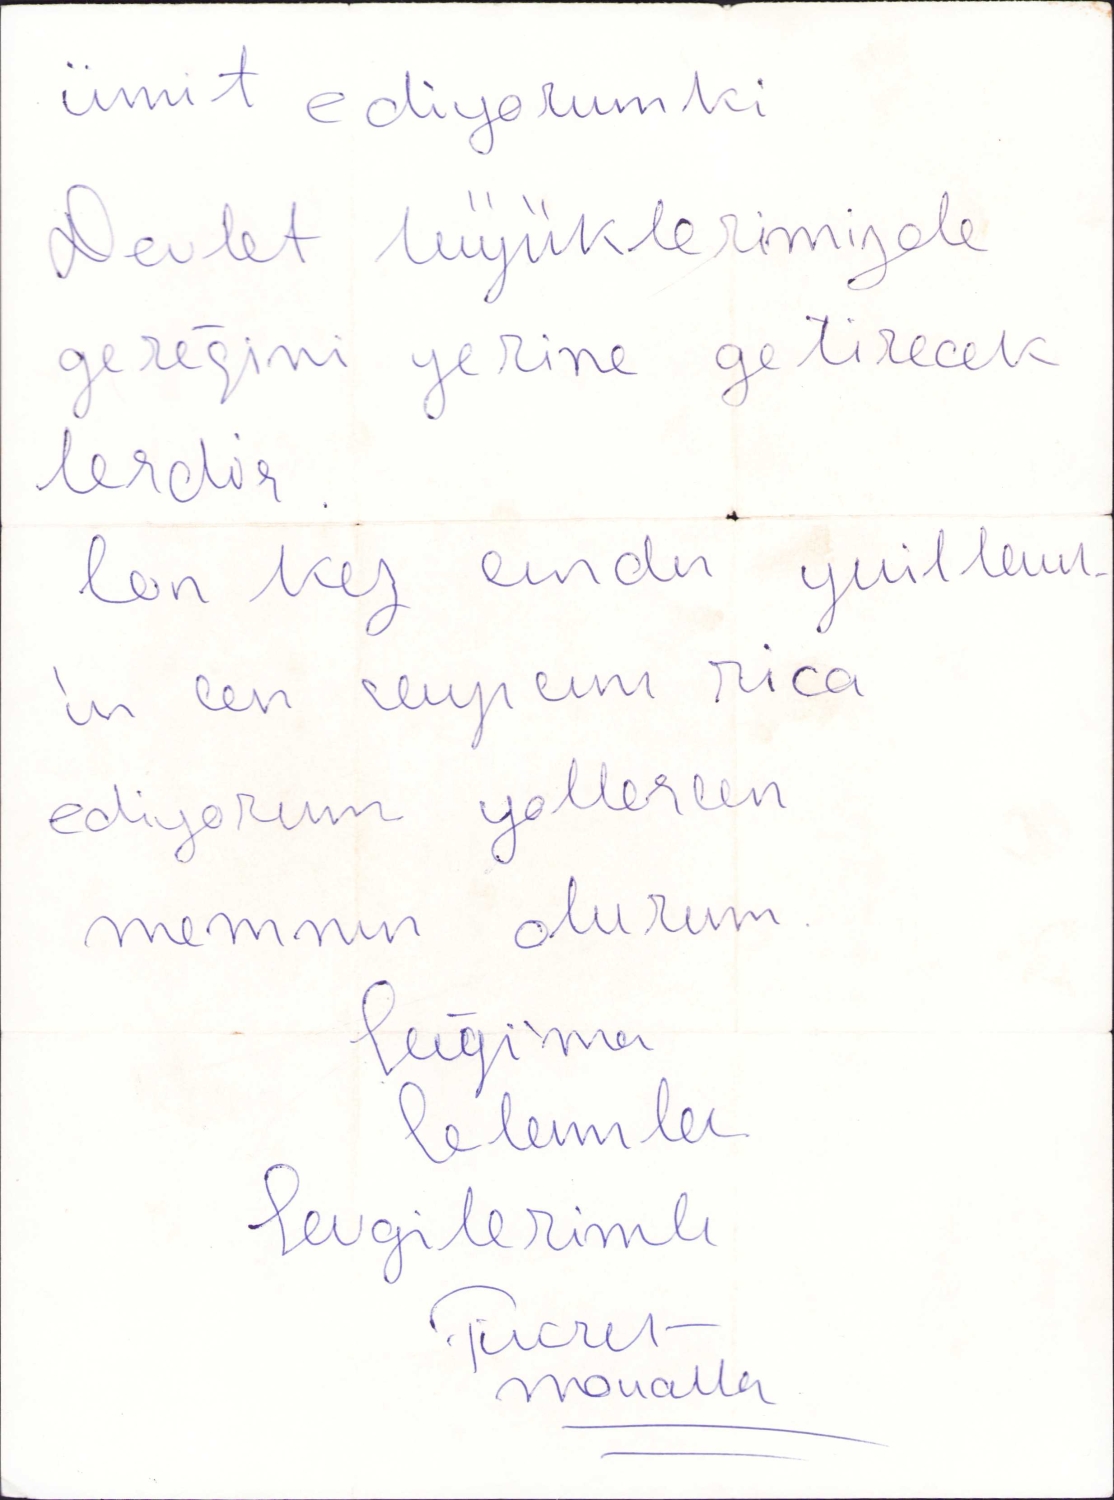 ümit ediyorumki
Devlet büyüklerimizde
gereğini yerine getirecek
lerdir.
Son kez
rica
ediyorum yollarsan
memnun olurum.
Saygıma
Selamla
Sevgilerimle
Fikret
moualla